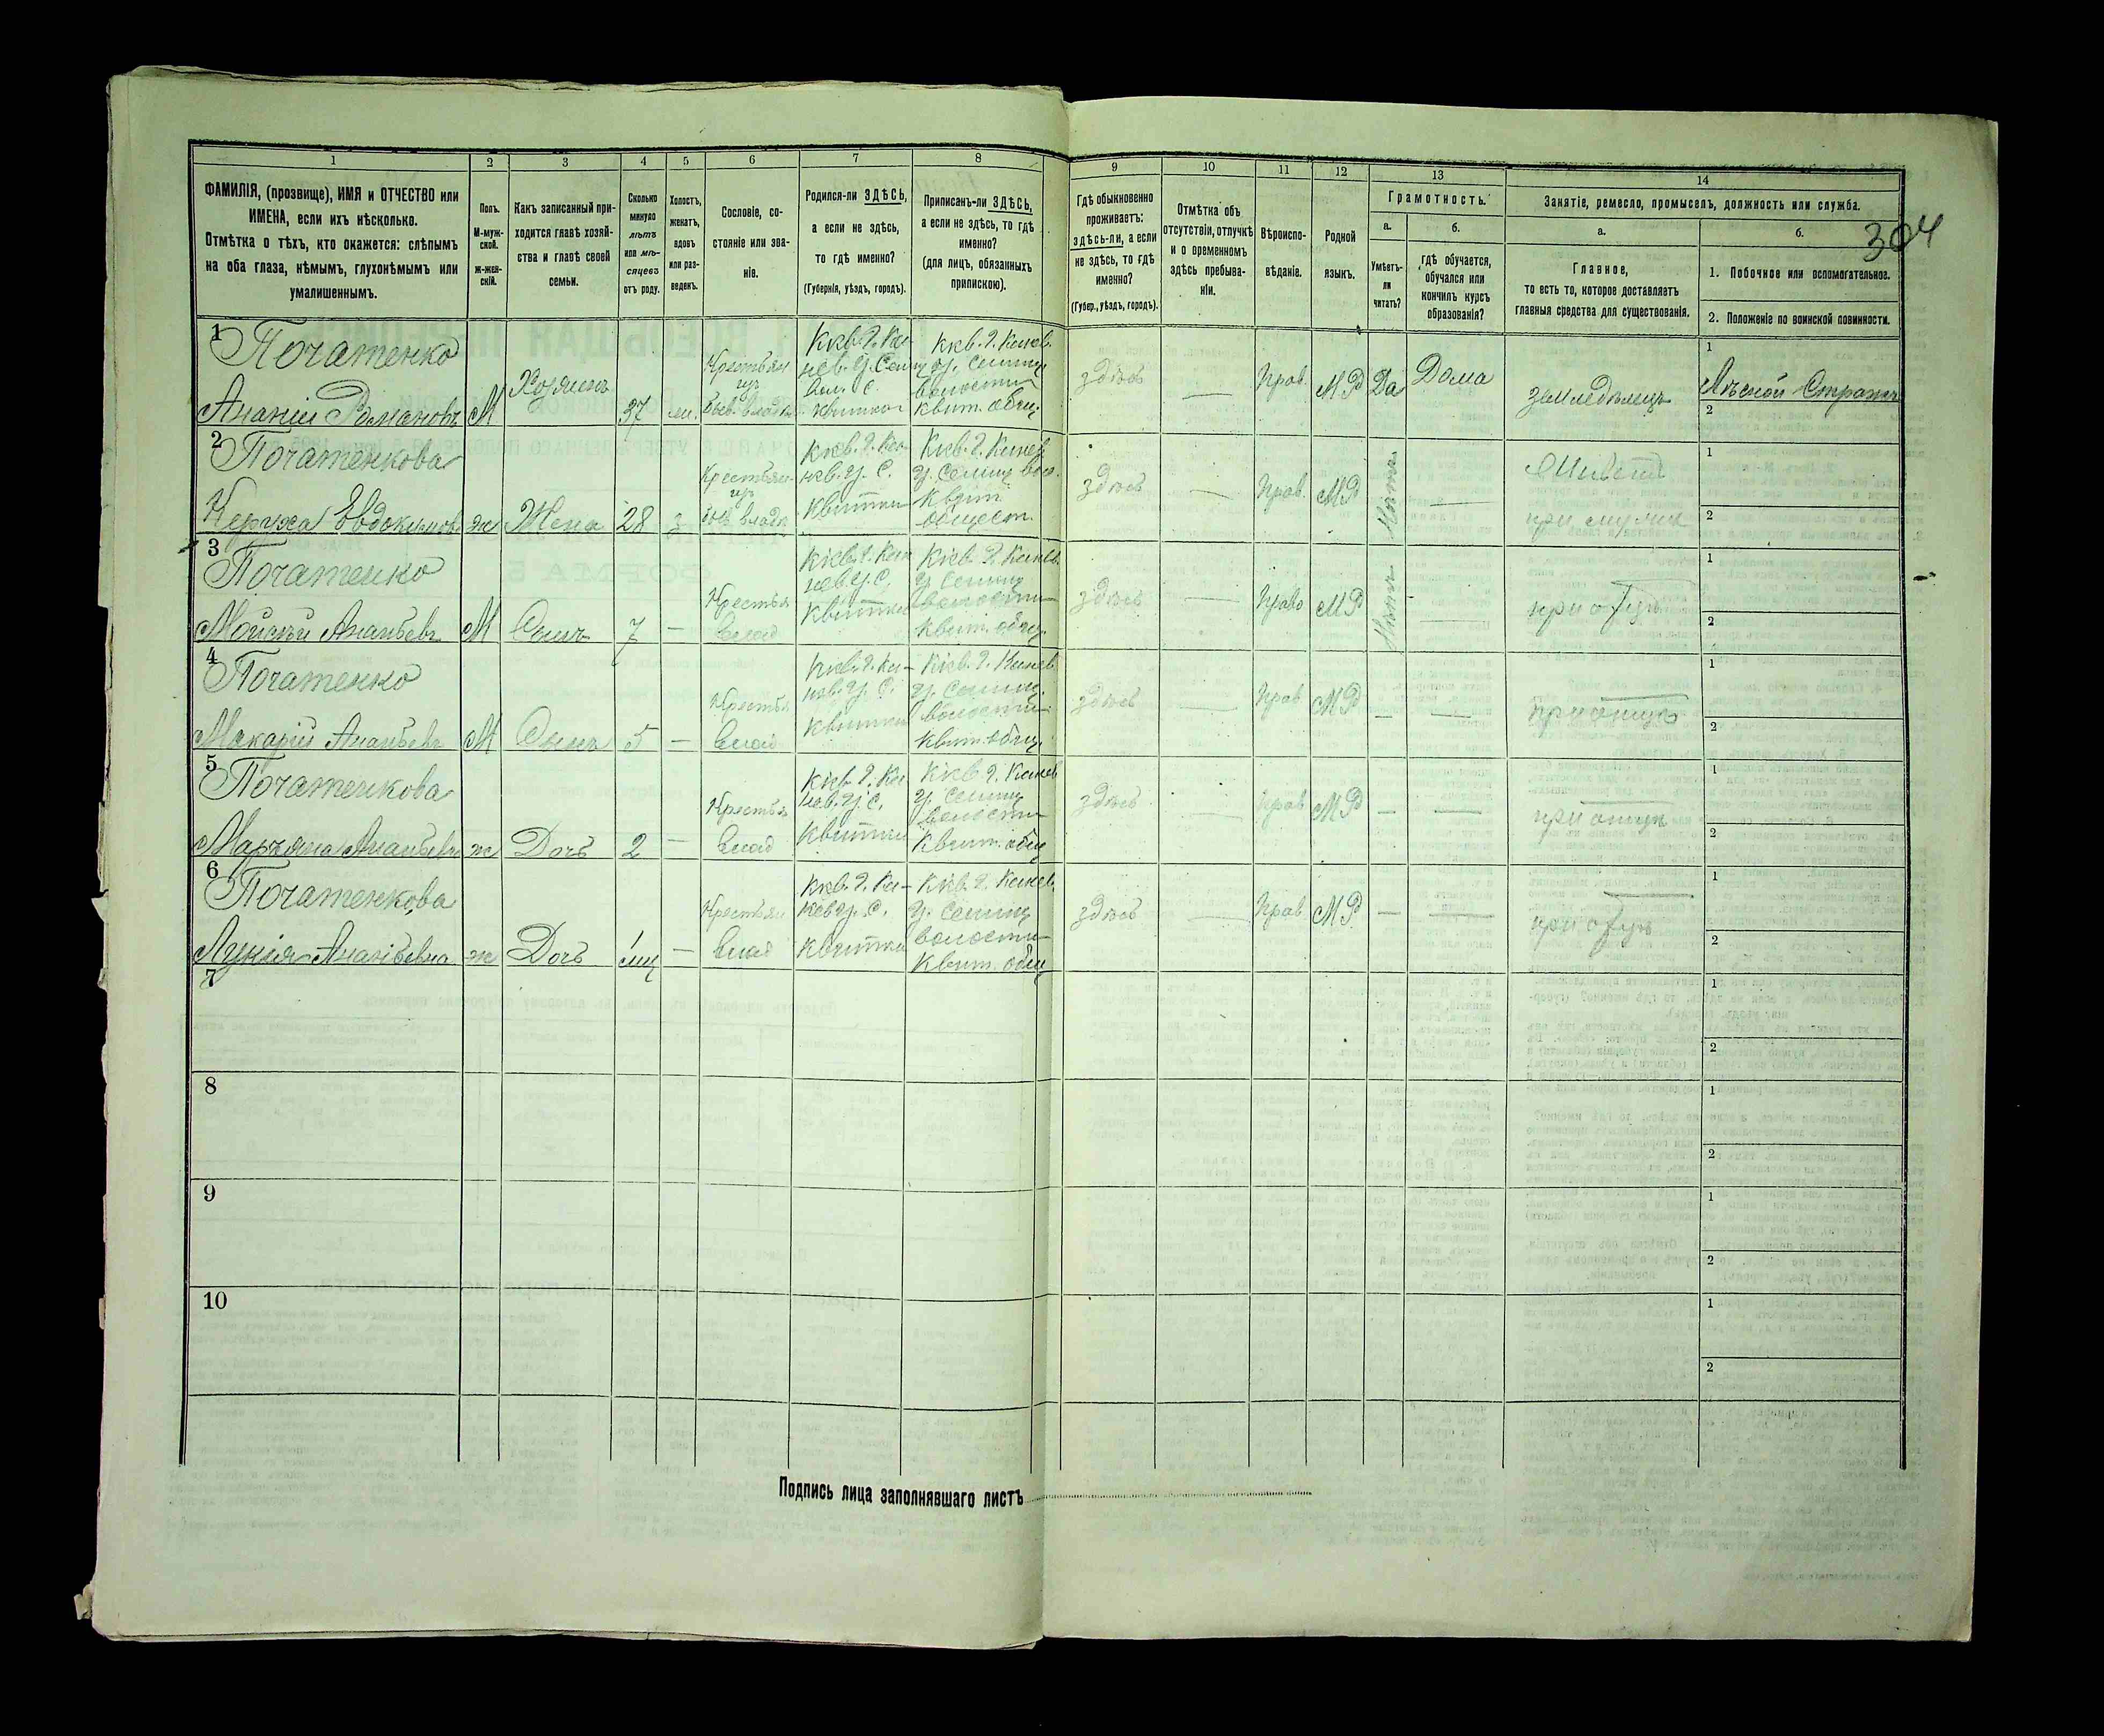 304
1 2 3 4 5 6 7 8 9 10 11 12 13 14
ФАМИЛІЯ, (прозвище), ИМЯ и ОТЧЕСТВО или
ИМЕНА, если ихъ нѣсколько.
Отмѣтка о тѣхъ, кто окажется: слѣпымъ
на оба глаза, нѣмымъ, глухонѣмымъ или
умалишеннымъ.
Полъ.
М-муж-
ской.
ж-жен-
скій.
Какъ записанный при-
ходится главѣ хозяй-
ства и главѣ своей
семьи.
Сколько
минуло
лѣтъ
или мѣ-
сяцевъ
отъ роду.
Холостъ,
женатъ,
вдовъ
или раз-
веденъ.
Сословіе, со-
стояніе или зва-
ніе.
Родился-ли ЗДѢСЬ,
а если не здѣсь,
то гдѣ именно?
(Губернія, уѣздъ, городъ).
Приписанъ-ли ЗДѢСЬ,
а если не здѣсь, то гдѣ
именно?
(для лицъ, обязанныхъ
припискою).
Гдѣ обыкновенно
проживаетъ:
здѣсь-ли, а если
не здѣсь, то гдѣ
именно?
(Губер., уѣздъ, городъ).
Отмѣтка объ
отсутствіи, отлучкѣ
и о временномъ
здѣсь пребыва-
ніи.
Вѣроиспо-
вѣданіе.
Родной
языкъ.
Грамотность.
а.
Умѣетъ-
ли
читать?
б.
гдѣ обучается,
обучался или
кончилъ курсъ
образованія?
Занятіе, ремесло, промыселъ, должность или служба.
а.
Главное,
то есть то, которое доставляетъ
главныя средства для существованія.
б.
1. Побочное или вспомогательное.
2. Положеніе по воинской повинности.
1
Початенко
Ананій Романовъ
М
Хозяинъ
37
Крестьян
изъ
Кіев. г. Ка-
нев. у.
Кіев. г. Канев.
волости
Квит. общ.
здѣсь
—
Прав.
МР
Да
Дома
земледѣлецъ
1
Лѣсной Стражъ
2
2
Початенкова
ж
Жена
28
з
Крестьян
изъ
Кіев. г. Ка-
нев. у. с.
Квитки
Кіев. г. Канев
Квит.
общест.
здѣсь
—
Прав.
МР
—
при мужѣ
1
2
3
Початенко
Мойсей Ананьевъ
М
Сынъ
7
—
Крестья
влад
Кіев. г. Кан
нев. у. с.
Квитки
Кіев. г. Канев.
волости
Квит. общ.
здѣсь
—
Право
МР
—
при отцѣ
1
2
4
Початенко
Макарій Ананьевъ
М
Сынъ
5
—
Крестья
влад
Кіев. г. Ка-
нев. у. с.
Квитки
Кіев. г. Канев.
волости
Квит. общ.
здѣсь
—
Прав
МР
—
—
при отцѣ
1
2
5
Початенкова
Марьяна Ананьевн
ж
Дочь
2
—
Крестья
влад
Кіев. г. Ка
нев. у. с.
Квитки
Кіев. г. Канев
волости
Квит. общ
здѣсь
—
Прав
МР
—
—
при отцѣ
1
2
6
Початенкова
Лукія Ананьевна
ж
Дочь
—
Крестьян
влад
Кіев. г. Ка-
нев. у. с.
Квитки
Кіев. г. Канев.
волости
Квит. общ
здѣсь
—
Прав
МР
—
—
при отцѣ
1
2
7
1
2
8
1
2
9
1
2
10
1
2
Подпись лица заполнявшаго листъ